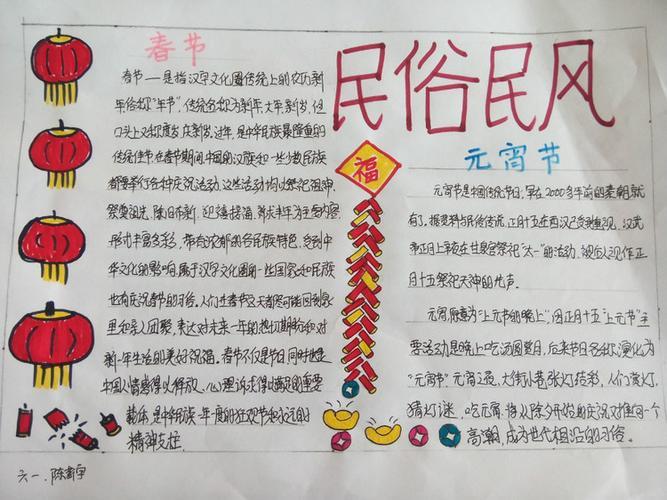 春节
春节——是指汉字文化圈传统上的农历新
年俗称"年节",传统名称为新年、大年、新岁,但
口头上又称度岁、庆新岁、过年,是中华民族最隆重的
传统佳节在春节期间中国的汉族和一些少数民族
都要举行各种庆祝活动。这些活动均以祭祀祖神、
祭奠祖先、除旧布新、迎禧接福、祈求丰年为主要内容
形式丰富多彩,带有浓郁的各民族特色。受到中
华文化的影响,属于汉字文化圈的一些国家和民族
也有庆祝春节的习俗。人们在春节这天都尽可能回到家
里和亲人团聚,表达对未来一年的热切期盼和对
新一年生活的美好祝福。春节不仅是节日,同时也是
中国人情感得以释放、心理诉求得以满足的重要
载体,是中华民族一年一度的狂欢节和永远的
精神支柱.
民俗民风
福
元宵节
元宵节是中国传统节日,早在2000多年前的秦朝就
有了。据资料与民俗传说,正月十五在西汉已受到重视,汉武
帝正月上辛夜在甘泉宫祭祀"太一"的活动,被后人视作正
月十五祭祀天神的先声。
元宵原意为"上元节的晚上",因正月十五"上元节"主
要活动是晚上吃汤圆赏月,后来节日名称演化为
"元宵节"元宵之夜,大街小巷张灯结彩,人们赏灯,
猜灯谜,吃元宵,将从除夕开始的庆祝又推向一个
高潮,成为世代相沿的习俗。
六一、陈